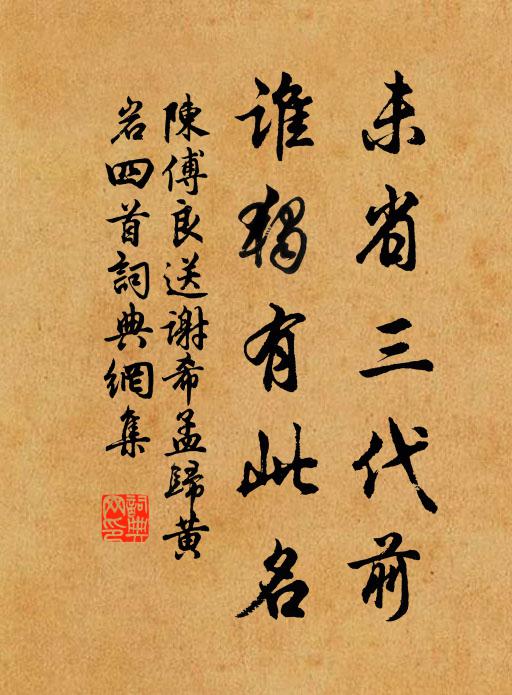 未省三代前
誰獨有此名
陳傅良送謝希孟歸黃
岩四首詞典網集
詞典網印